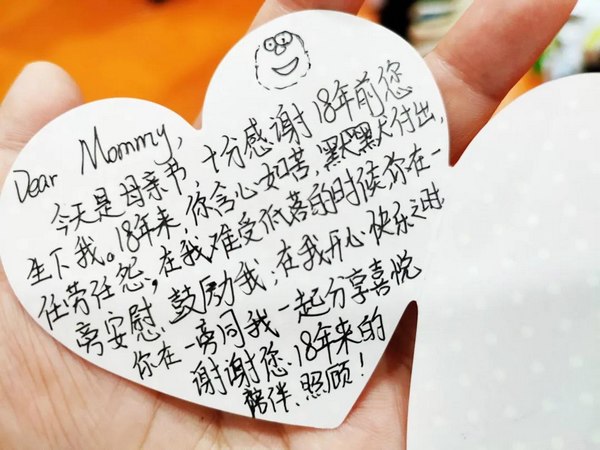 Dear Mommy,
今天是母亲节，十分感谢18年前您
生下我。18年来，你含心如苦，默默付出，
任劳任怨，在我难受低落的时候，你在一
旁安慰、鼓励我；在我开心快乐之时
你在一旁同我一起分享喜悦
谢谢您18年来的
陪伴、照顾！